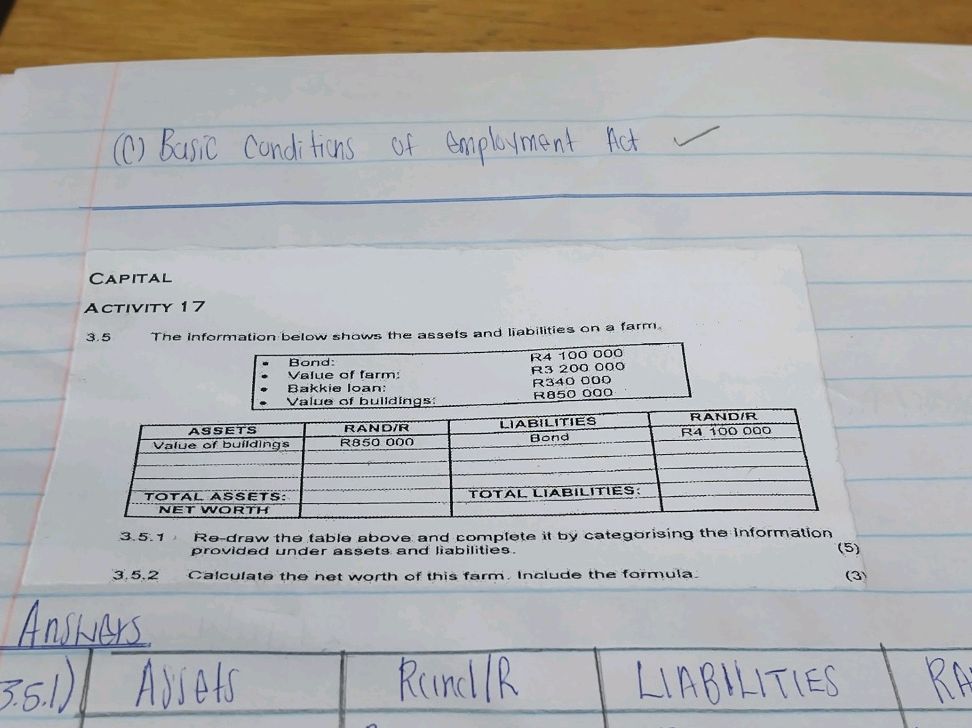 (C) Basic Conditions of Employment Act
CAPITAL
ACTIVITY 17
3.5 The information below shows the assets and liabilities on a farm.
• Bond: R4 100 000
• Value of farm: R3 200 000
• Bakkie loan: R340 000
• Value of buildings: R850 000
ASSETS RAND/R LIABILITIES RAND/R
Value of buildings R850 000 Bond R4 100 000
TOTAL ASSETS: TOTAL LIABILITIES:
NET WORTH
3.5.1 Re-draw the table above and complete it by categorising the information
provided under assets and liabilities. (5)
3.5.2 Calculate the net worth of this farm. Include the formula. (3)
Answers
3.5.1) Assets Rand/R LIABILITIES RA